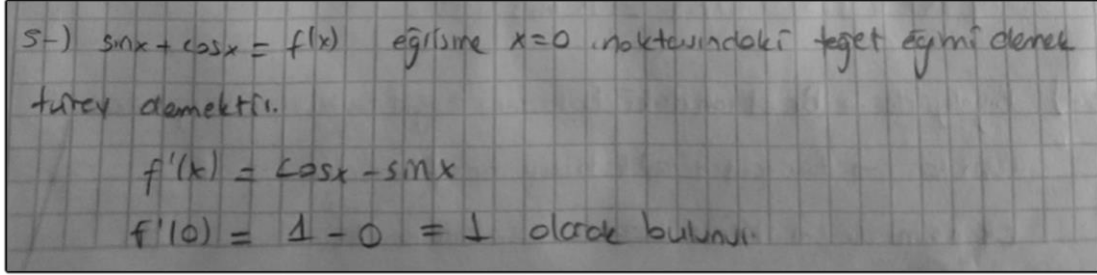 5-) sinx + cosx = f(x) eğrisine x=0 noktasındaki teğet eğimi demek
türev demektir.
f'(x) = cosx - sinx
f'(0) = 1 - 0 = 1 olarak bulunur.